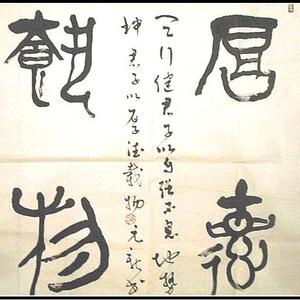 厚德
天行健君子以自强不息地势
坤君子以厚德載物
載物